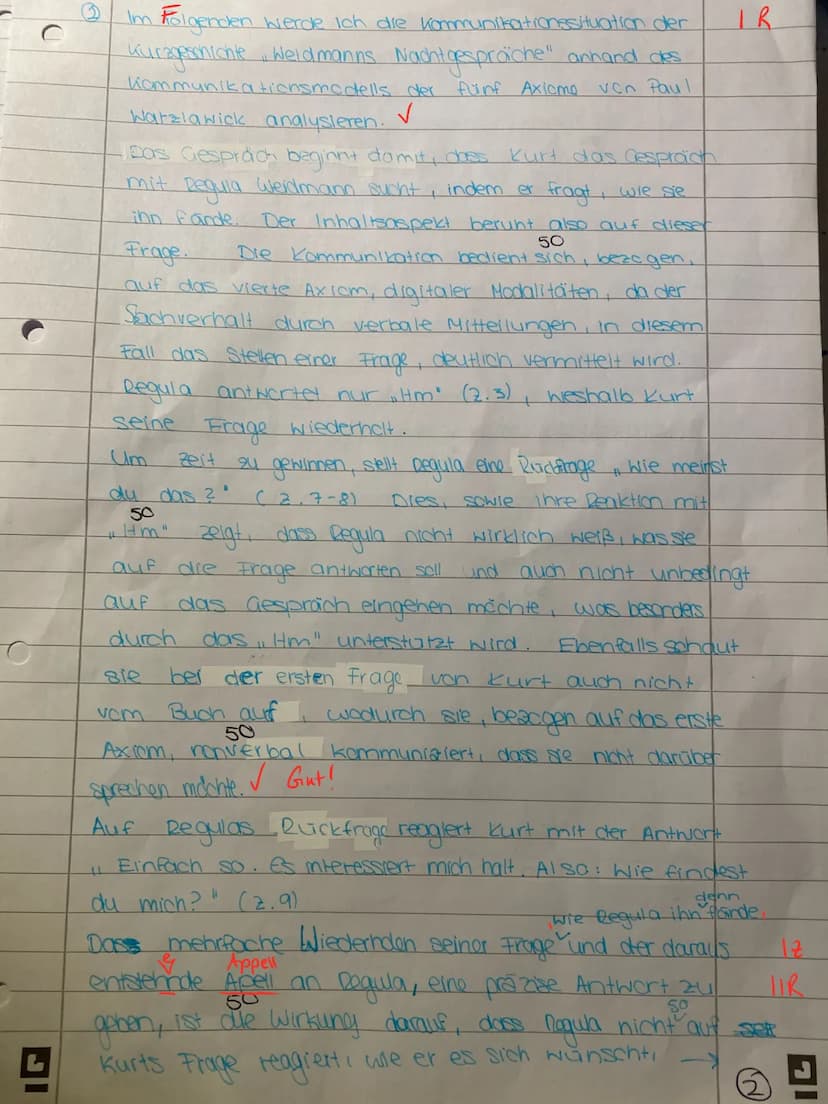 ② Im Folgenden werde ich die Kommunikationssituation der I R
Kurzgeschichte „Weidmanns Nachtgespräche" anhand des
Kommunikationsmodells der fünf Axiome von Paul
Warzlawick analysieren. ✓
Das Gespräch beginnt damit, dass Kurt das Gespräch
mit Regula Weidmann sucht, indem er fragt, wie sie
ihn fände. Der Inhaltsaspekt beruht also auf dieser
50
Frage. Die Kommunikation bedient sich, bezogen
auf das vierte Axiom, digitaler Modalitäten, da der
Sachverhalt durch verbale Mitteilungen, in diesem
Fall das Stellen einer Frage, deutlich vermittelt wird.
Regula antwortet nur „Hm" (Z.3), weshalb Kurt
seine Frage wiederholt.
Um Zeit zu gewinnen, stellt Regula eine Rückfrage „Wie meinst
du das?" (Z.7-8) Dies, sowie ihre Reaktion mit
50
„Hm" zeigt, dass Regula nicht wirklich weiß, was sie
auf die Frage antworten soll und auch nicht unbedingt
auf das Gespräch eingehen möchte, was besonders
durch das „Hm" unterstützt wird. Ebenfalls schaut
sie bei der ersten Frage von Kurt auch nicht
vom Buch auf, wodurch sie, bezogen auf das erste
50
Axiom, nonverbal kommuniziert, dass sie nicht darüber
sprechen möchte. ✓ Gut!
Auf Regulas Rückfrage reagiert Kurt mit der Antwort
„Einfach so. Es interessiert mich halt. Also: Wie findest
du mich?" (Z.9)
denn
wie Regula ihn fände,
Dass mehrfache Wiederholen seiner Frage und der daraus I Z
Appell
entstehnde Apell an Regula, eine präzise Antwort zu II R
50
50
geben, ist die Wirkung darauf, dass Regula nicht auf
Kurts Frage reagiert, wie er es sich wünscht, →
②